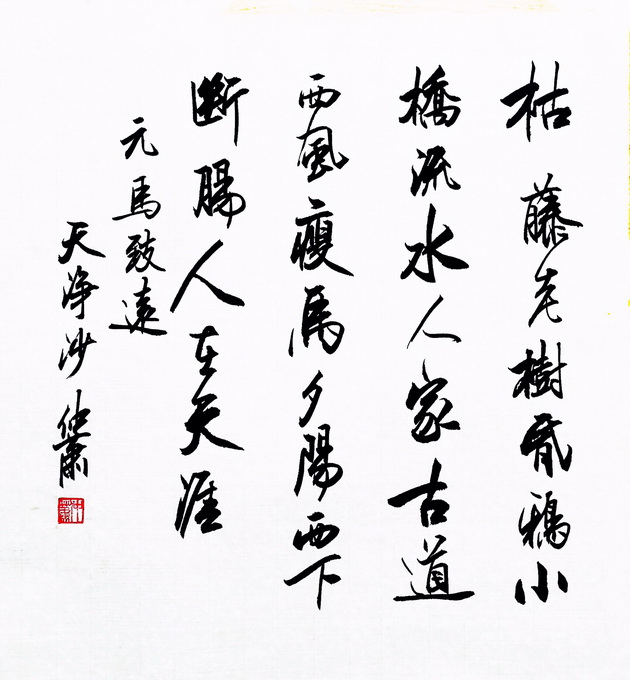 枯藤老樹昏鴉小
橋流水人家古道
西風瘦馬夕陽西下
斷腸人在天涯
元馬致遠
天淨沙